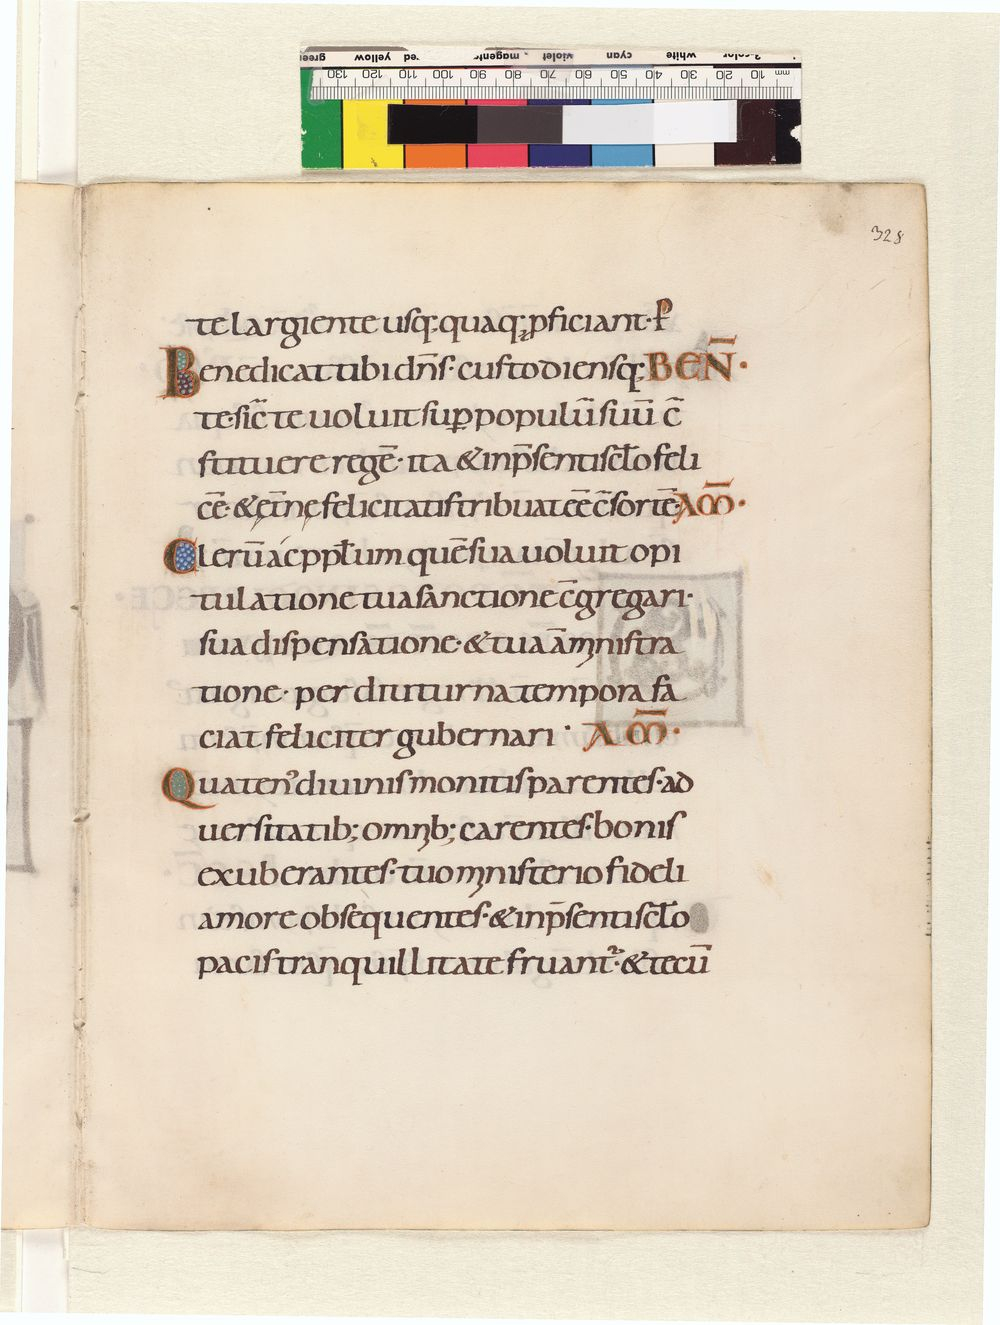 green yellow red magenta violet cyan white 3-color
130 120 110 100 90 80 70 60 50 40 30 20 10 mm
328
te largiente usq; quaq; ꝓficiant· P̄
Benedicat tibi dn̄s· custodiensq; BEN̄·
te· sic̄ te uoluit suꝑ populū suū c̄
stituere regē· ita & in p̄senti sc̄lo feli
cē· & ęt̄nę felicitatis tribuat eē c̄sortē· AM̄·
Clerū ac ppl̄um quē sua uoluit opi
tulatione tua sanctione c̄gregari·
sua dispensatione· & tua ām̄nistra
tione· per diuturna tempora fa
ciat feliciter gubernari· AM̄·
Quaten᾿ diuinis monitis parentes· ad
uersitatib; omnib; carentes· bonis
exuberantes· tuo ministerio fideli
amore obsequentes· & in p̄senti sc̄lo
pacis tranquillitate fruant᷑· & tecū